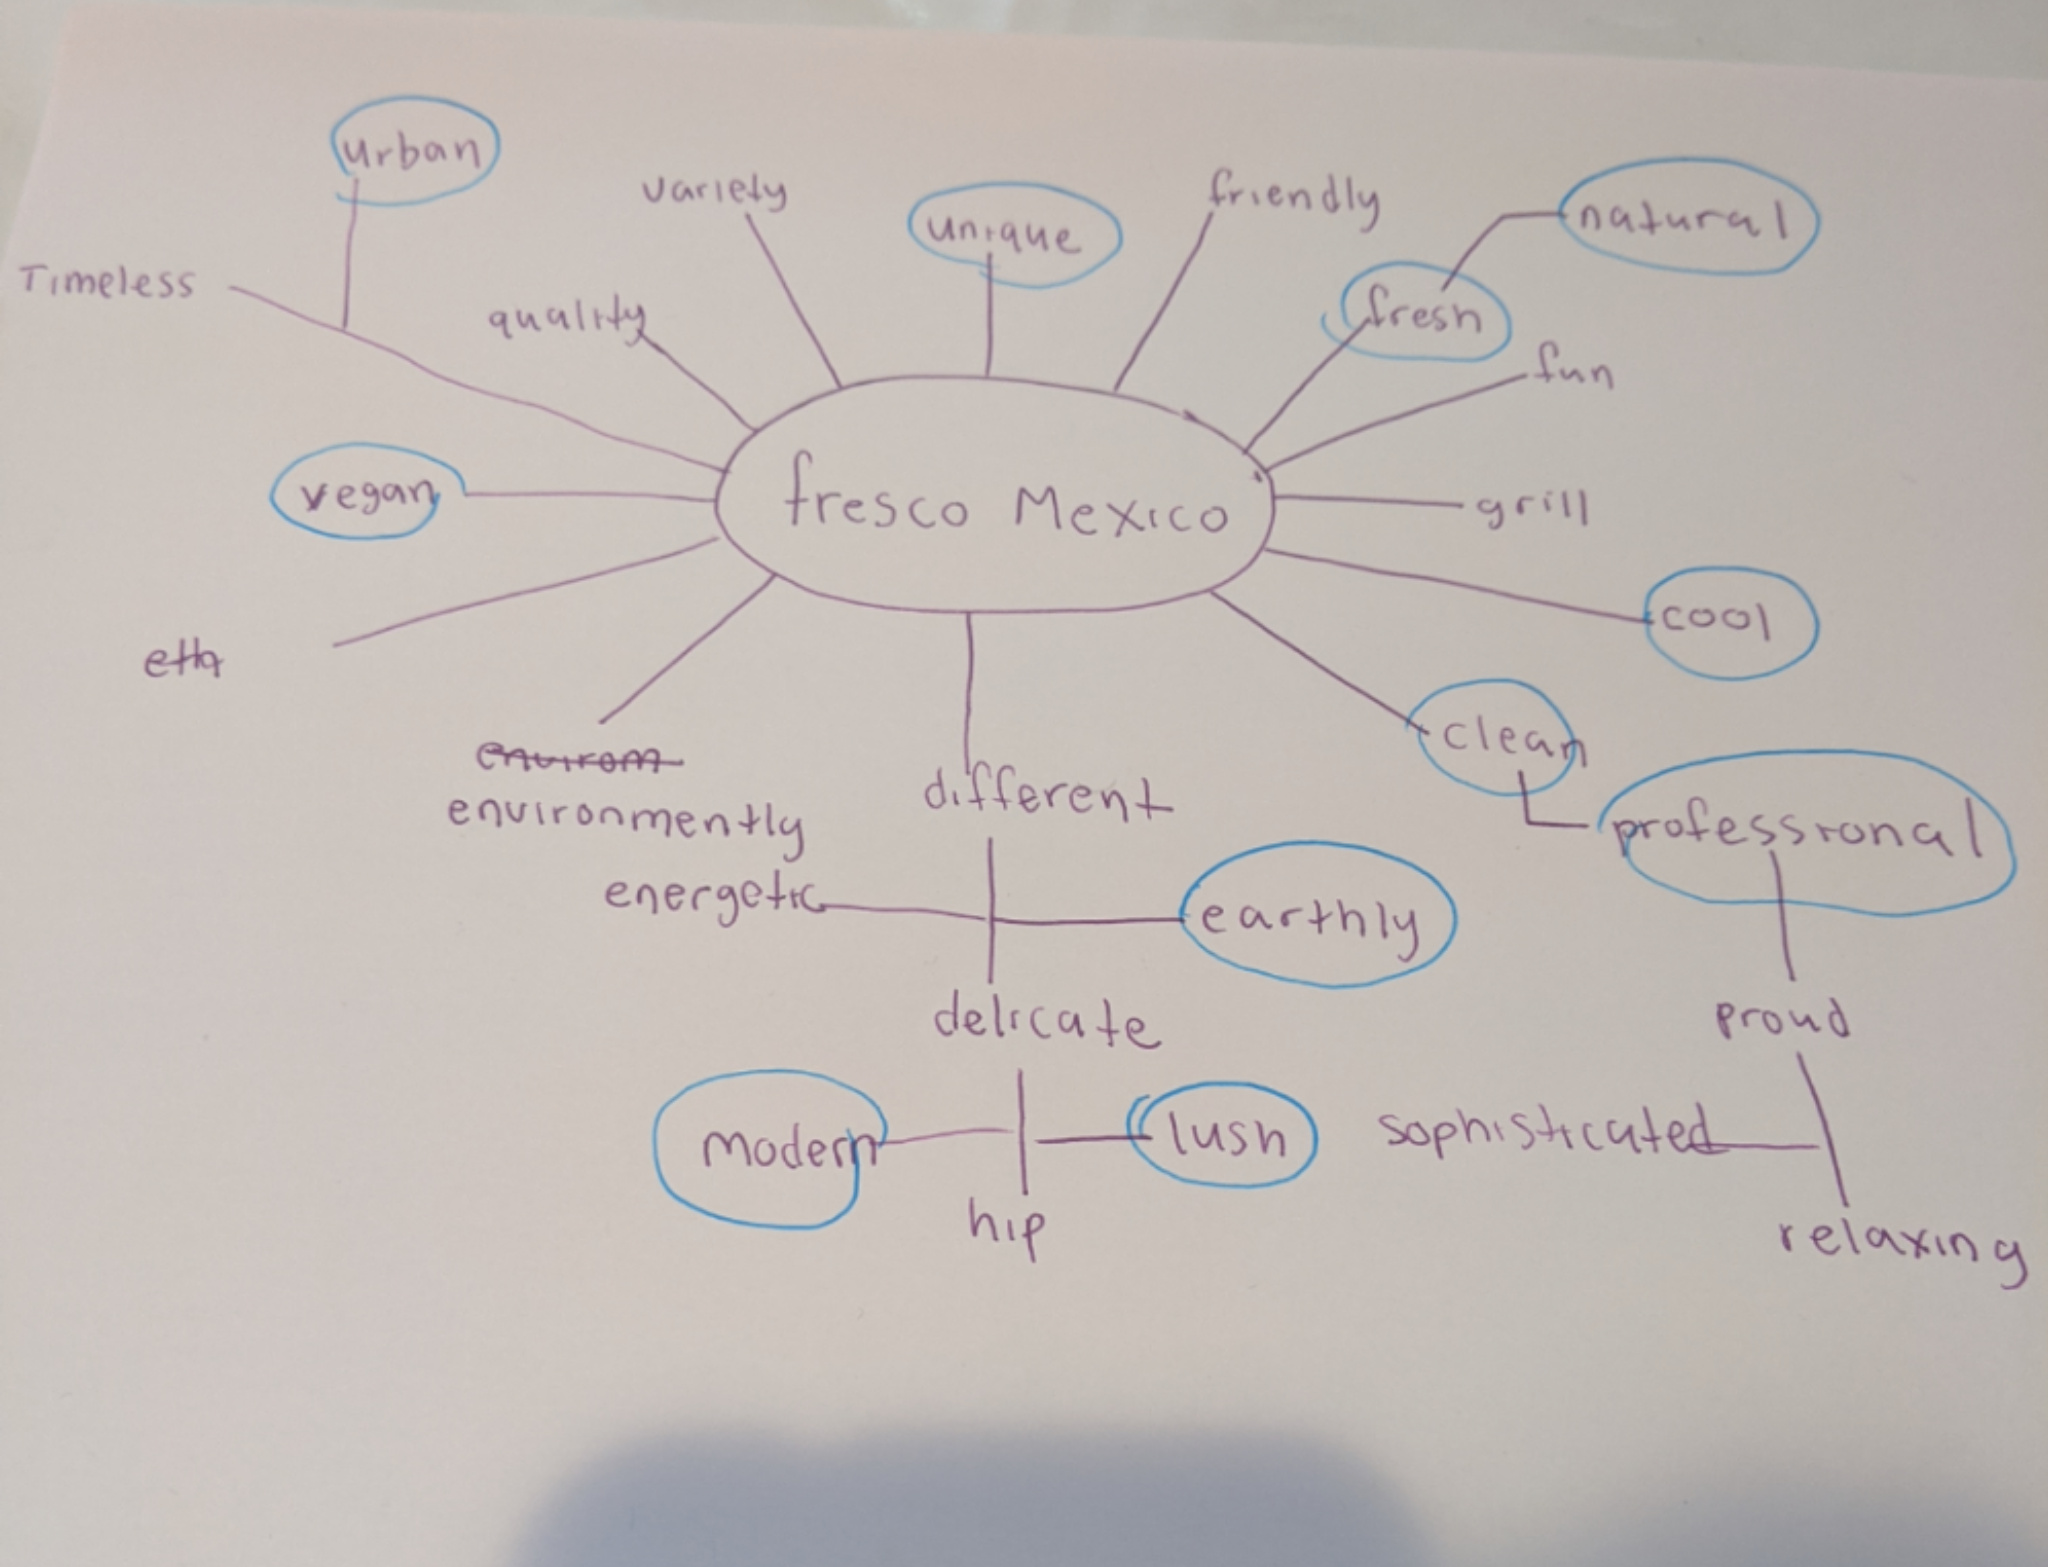 urban
variety
unique
friendly
natural
Timeless
quality
fresh
fun
vegan
fresco Mexico
grill
cool
eth
clean
envirom
environmently
different
professional
energetic
earthly
delicate
proud
modern
lush
sophisticated
hip
relaxing